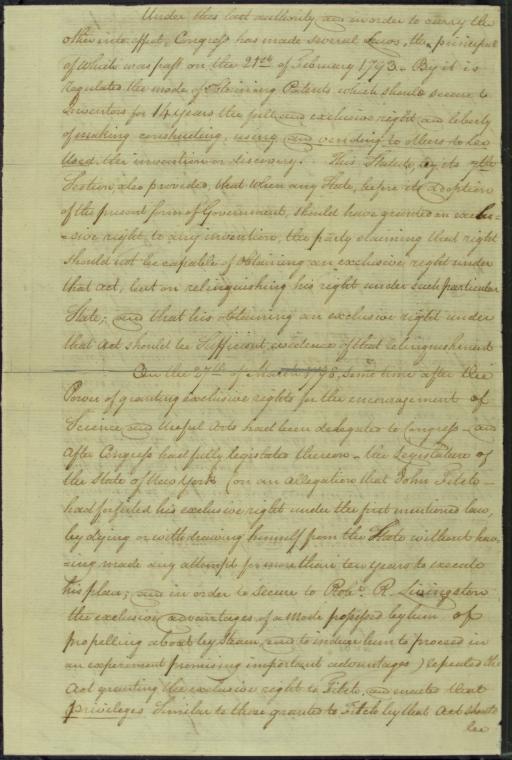 Under this last authority, and in order to carry the
other into effect, Congress has made several Laws, the principal
of which was past on the 21st of February 1793. By it is
regulated the mode of obtaining Patents which should secure to
Inventors for 14 years the full and exclusive right and liberty
of making constructing, using and vending to others to be
Used, the invention or discovery. This Statute, by its 7th
Section, also provided, that when any State, before its adoption
of the present form of Government, should have granted an exclu-
-sive right to any invention, the party claiming that right
should not be capable of obtaining an exclusive right under
that act, but on relinquishing his right under such particular
State; and that his obtaining an exclusive right under
that act should be Sufficient evidence of that relinquishment
On the 27th of March 1798, some time after the
Power of granting exclusive rights for the encouragement of
Science and Useful Arts had been delegated to Congress and
after Congress had fully legislated thereon – the Legislature of
the State of New York (on an allegation that John Fitch –
had forfeited his exclusive right under the first mentioned law,
by dying or withdrawing himself from the State without hav-
-ing made any attempt for more than ten years to execute
his plan; and in order to secure to Robt. R. Livingston
the exclusive advantages of a Mode possessed by him of
propelling a boat by Steam, and to induce him to proceed in
an experiment promising important advantages) repealed the
Act granting the exclusive right to Fitch, and enacted that
privileges Similar to those granted to Fitch by that Act should
be